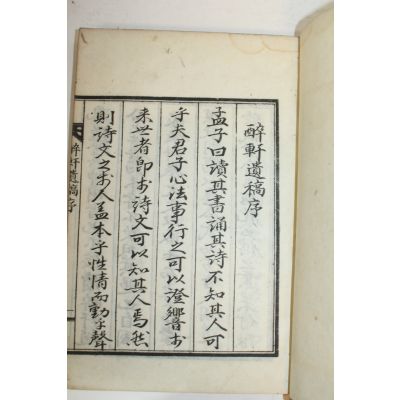 醉軒遺稿序
孟子曰讀其書誦其詩不知其人可
乎夫君子心法事行之可以證響於
来世者卽於詩文可以知其人焉然
則詩文之於人盖本乎性情而動乎聲
醉軒遺稿序